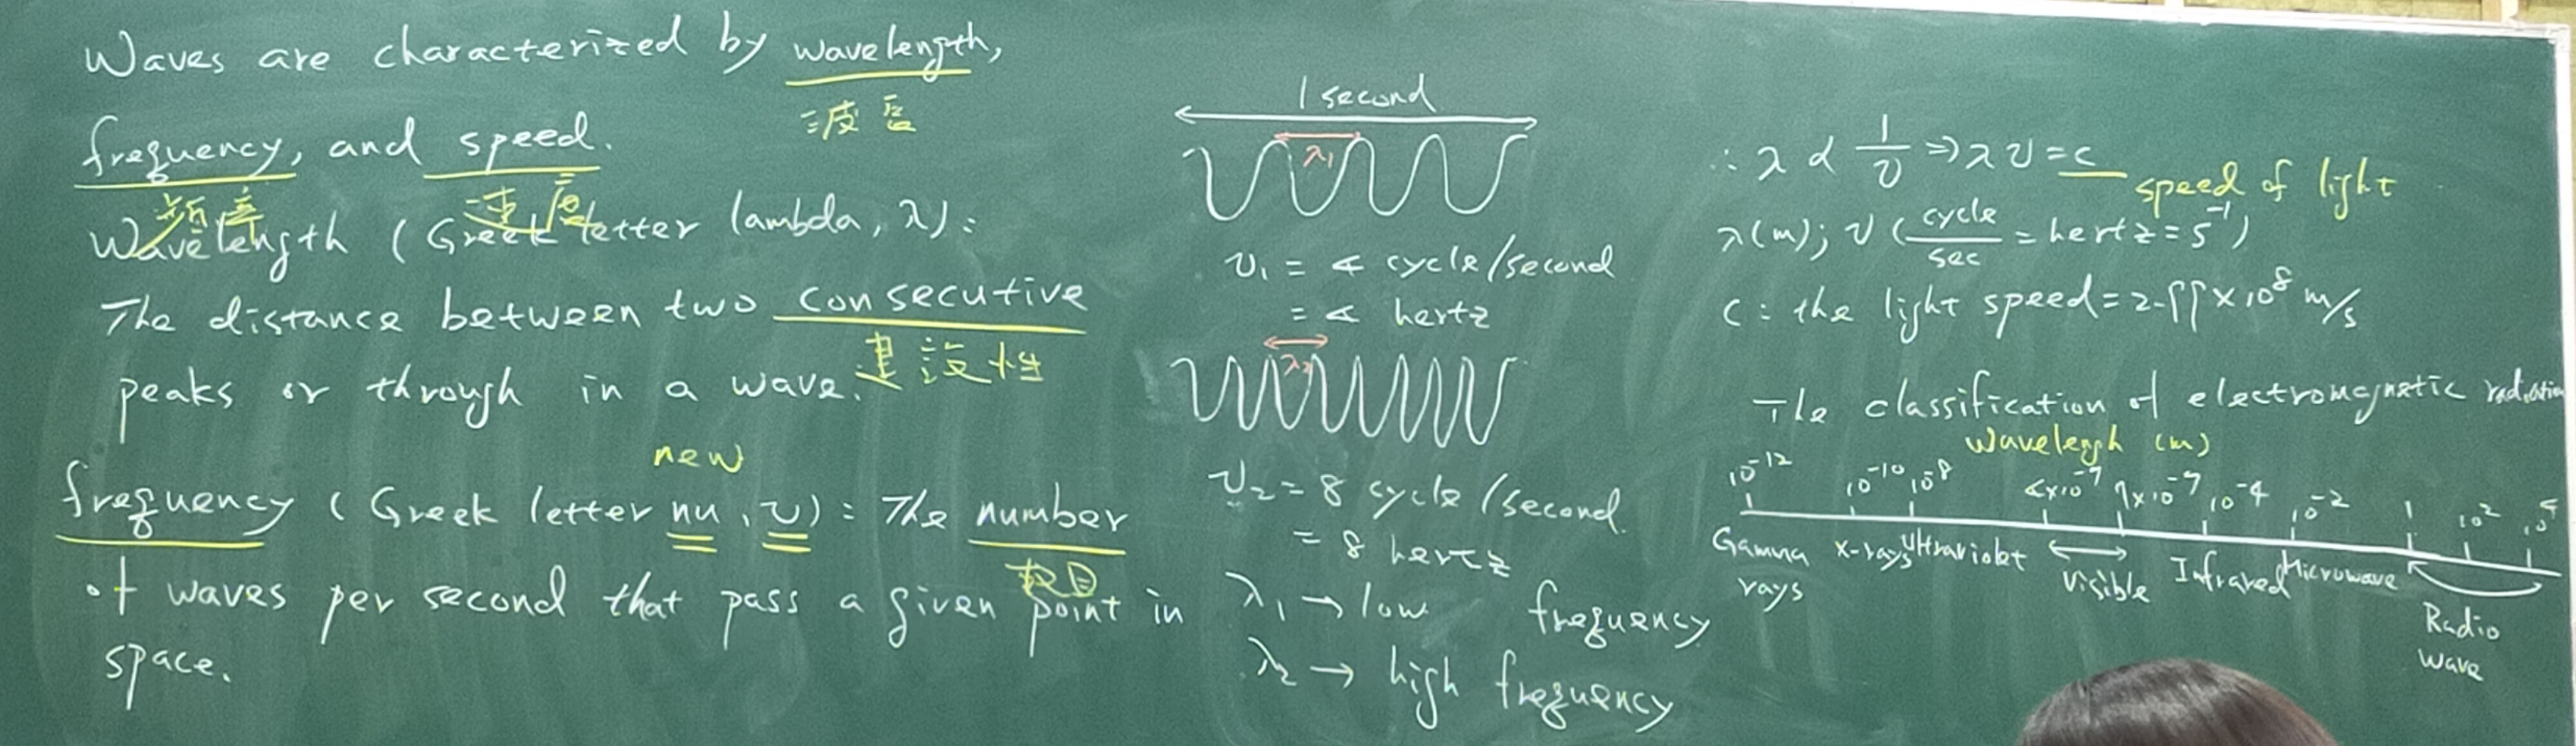 Waves are characterized by wavelength,
波長
frequency, and speed.
頻率 速度
Wavelength (Greek letter lambda, λ):
The distance between two consecutive
建設性
peaks or through in a wave.
new
frequency (Greek letter nu, ν): The number
数目
of waves per second that pass a given point in
space.
1 second
λ₁
ν₁ = 4 cycle/second
= 4 hertz
λ₂
ν₂ = 8 cycle/second.
= 8 hertz
λ₁ → low frequency
λ₂ → high frequency
∴ λ ∝ 1/ν ⇒ λν = c speed of light
λ(m); ν (cycle/sec = hertz = s⁻¹)
C: the light speed = 2.99×10⁸ m/s
The classification of electromagnetic radiation
Wavelengh (m)
10⁻¹² 10⁻¹⁰ 10⁻⁸ 4×10⁻⁷ 7×10⁻⁷ 10⁻⁴ 10⁻² 1 10² 10⁴
Gamma rays X-rays Ultraviolet Visible Infrared Microwave
Radio
wave